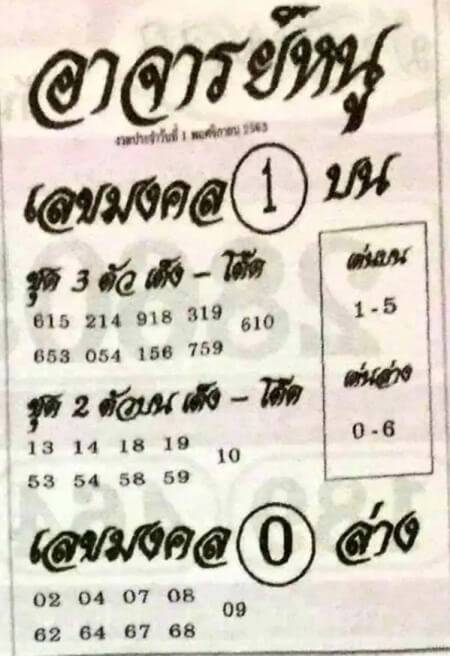 อาจารย์หนู
งวดประจำวันที่ 1 พฤศจิกายน 2563
เลขมงคล 1 บน
ชุด 3 ตัว เต็ง - โต๊ด
615 214 918 319 610
653 054 156 759
เด่นบน
1 - 5
ชุด 2 ตัวบน เต็ง - โต๊ด
13 14 18 19 10
53 54 58 59
เด่นล่าง
0 - 6
เลขมงคล 0 ล่าง
02 04 07 08 09
62 64 67 68